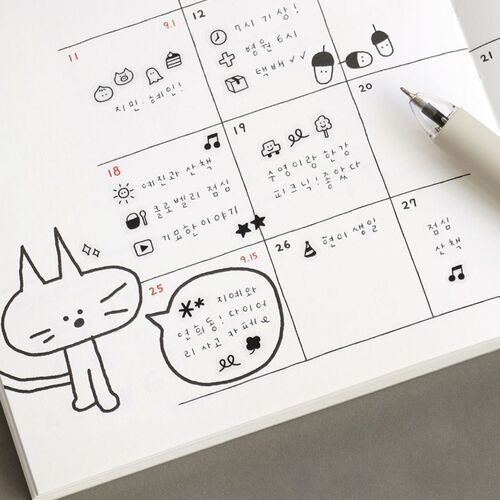 11 9.1
지민·혜인!
12
7시 기상!
병원 6시
택배 ✓✓
18
예진과 산책
클로벨리 점심
기묘한이야기
19
수영이랑 한강
피크닉! 좋았다
20
21
25 9.15
지예와
연희동! 다이어
리 사고 카페
26
현이 생일
27
점심
산책